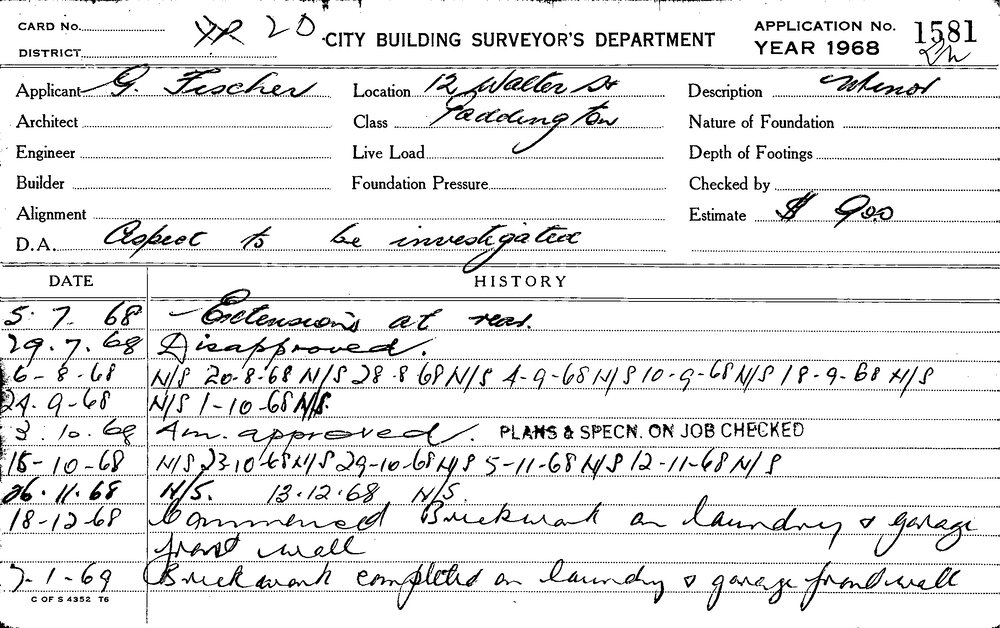 CARD No.
DISTRICT
CITY BUILDING SURVEYOR'S DEPARTMENT
APPLICATION No. 1581
YEAR 1968
Applicant G. Fischer Location 12 Walter St Description Minor
Architect Class Paddington Nature of Foundation
Engineer Live Load Depth of Footings
Builder Foundation Pressure Checked by
Alignment Estimate $ 900
D.A. Aspect to be investigated
DATE HISTORY
5. 7. 68 Extensions at rear.
29.7.68 Disapproved.
6-8-68 N/S 20-8-68 N/S 28-8 68 N/S 4-9-68 N/S 10-9-68 N/S 18-9-68 N/S
24.9-68 N/S 1-10-68 N/S.
3.10.68 Am. approved. PLANS & SPECN. ON JOB CHECKED
15-10-68 N/S 23-10-68 N/S 29-10-68 N/S 5-11-68 N/S 12-11-68 N/S
26.11.68 N/S. 13.12.68 N/S.
18-12-68 Commenced Brickwork on laundry & garage
front wall
7-1-69 Brickwork completed on laundry & garage front wall
C OF S 4352 T6